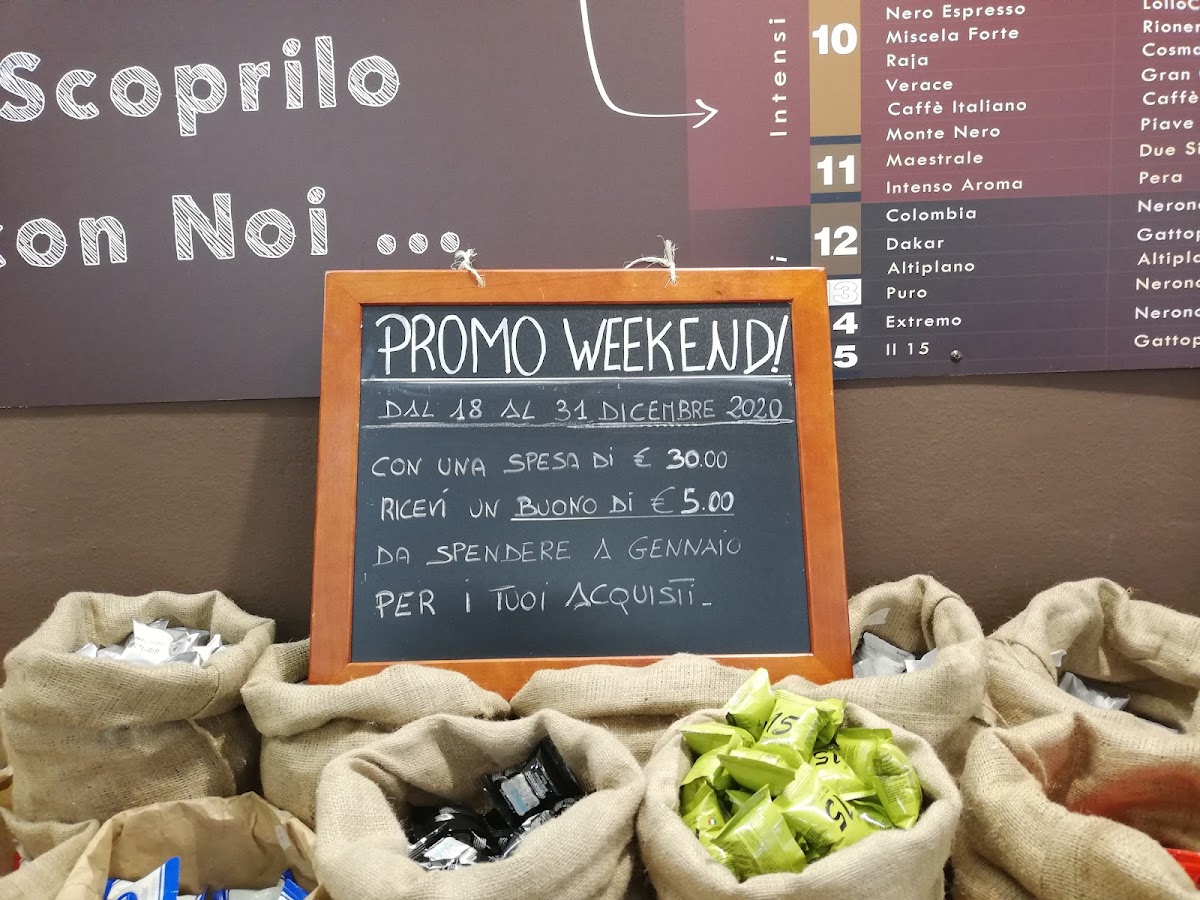 Scoprilo
con Noi ...
Intensi
10
11
12
13
4
5
Nero Espresso
Miscela Forte
Raja
Verace
Caffè Italiano
Monte Nero
Maestrale
Intenso Aroma
Colombia
Dakar
Altiplano
Puro
Extremo
Il 15
Gran
Caffè
Piave
Due
Pera
PROMO WEEKEND!
DAL 18 AL 31 DICEMBRE 2020
CON UNA SPESA DI € 30.00
RICEVI UN BUONO DI € 5.00
DA SPENDERE A GENNAIO
PER I TUOI ACQUISTI_
15
15
15